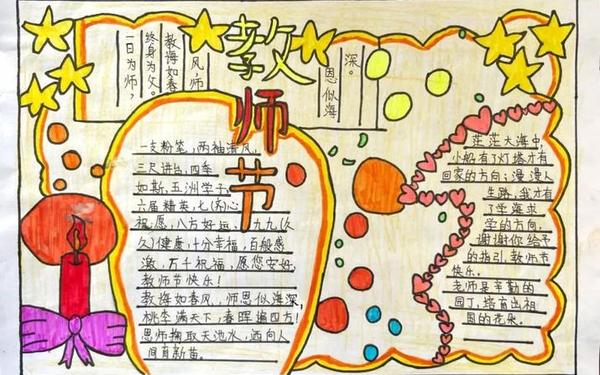 教师节
一日为师，
终身为父。
教诲如春
风，师
恩似海
深。
一支粉笔，两袖清风，
三尺讲台，四季
如斯，五洲学子，
六届精英，七(齐)心
祝愿，八方好运，九九(久
久)健康，十分幸福，百般感
激，万千祝福，愿您安好，
教师节快乐！
教诲如春风，师恩似海深，
桃李满天下，春晖遍四方！
恩师掬取天池水，洒向人
间育新苗。
茫茫大海中，
小船有了灯塔才有
回家的方向；漫漫人
生路，我才有
了学海求
学的方向。
谢谢你给予
的指引，教师节
快乐。
老师是辛勤的
园丁，培育出祖
国的花朵。